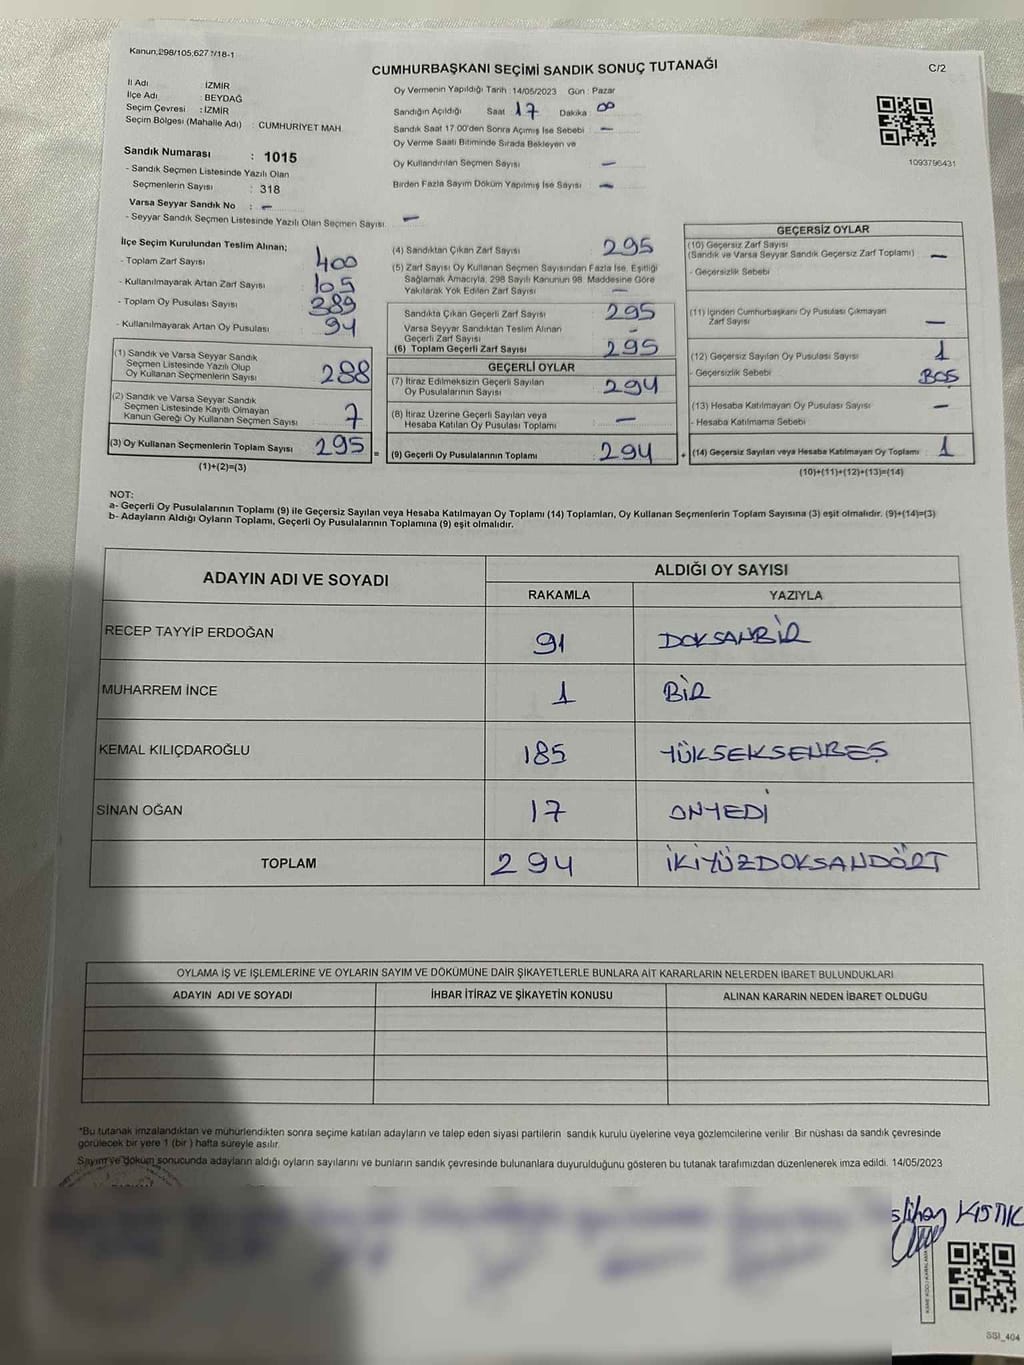 Kanun;298/105;627 ?/18-1
CUMHURBAŞKANI SEÇİMİ SANDIK SONUÇ TUTANAĞI
C/2
İl Adı : İZMİR
İlçe Adı : BEYDAĞ
Seçim Çevresi : İZMİR
Seçim Bölgesi (Mahalle Adı) : CUMHURİYET MAH.
Sandık Numarası : 1015
- Sandık Seçmen Listesinde Yazılı Olan
Seçmenlerin Sayısı : 318
Varsa Seyyar Sandık No : –
- Seyyar Sandık Seçmen Listesinde Yazılı Olan Seçmen Sayısı –
Oy Vermenin Yapıldığı Tarih : 14/05/2023 Gün : Pazar
Sandığın Açıldığı Saat 17 Dakika 00
Sandık Saat 17.00'den Sonra Açılmış İse Sebebi –
Oy Verme Saati Bitiminde Sırada Bekleyen ve
Oy Kullandırılan Seçmen Sayısı –
Birden Fazla Sayım Döküm Yapılmış İse Sayısı –
1093796431
İlçe Seçim Kurulundan Teslim Alınan;
- Toplam Zarf Sayısı : 400
- Kullanılmayarak Artan Zarf Sayısı : 105
- Toplam Oy Pusulası Sayısı : 389
- Kullanılmayarak Artan Oy Pusulası : 94
(1) Sandık ve Varsa Seyyar Sandık
Seçmen Listesinde Yazılı Olup
Oy Kullanan Seçmenlerin Sayısı : 288
(2) Sandık ve Varsa Seyyar Sandık
Seçmen Listesinde Kayıtlı Olmayan
Kanun Gereği Oy Kullanan Seçmen Sayısı : 7
(3) Oy Kullanan Seçmenlerin Toplam Sayısı : 295
(1)+(2)=(3)
(4) Sandıktan Çıkan Zarf Sayısı 295
(5) Zarf Sayısı Oy Kullanan Seçmen Sayısından Fazla İse, Eşitliği
Sağlamak Amacıyla; 298 Sayılı Kanunun 98. Maddesine Göre
Yakılarak Yok Edilen Zarf Sayısı –
Sandıkta Çıkan Geçerli Zarf Sayısı : 295
Varsa Seyyar Sandıktan Teslim Alınan
Geçerli Zarf Sayısı –
(6) Toplam Geçerli Zarf Sayısı : 295
GEÇERLİ OYLAR
(7) İtiraz Edilmeksizin Geçerli Sayılan
Oy Pusulalarının Sayısı : 294
(8) İtiraz Üzerine Geçerli Sayılan veya
Hesaba Katılan Oy Pusulası Toplamı : –
= (9) Geçerli Oy Pusulalarının Toplamı : 294
GEÇERSİZ OYLAR
(10) Geçersiz Zarf Sayısı
(Sandık ve Varsa Seyyar Sandık Geçersiz Zarf Toplamı) –
- Geçersizlik Sebebi
(11) İçinden Cumhurbaşkanı Oy Pusulası Çıkmayan
Zarf Sayısı –
(12) Geçersiz Sayılan Oy Pusulası Sayısı : 1
- Geçersizlik Sebebi : BOŞ
(13) Hesaba Katılmayan Oy Pusulası Sayısı : –
- Hesaba Katılmama Sebebi
+ (14) Geçersiz Sayılan veya Hesaba Katılmayan Oy Toplamı : 1
(10)+(11)+(12)+(13)=(14)
NOT:
a- Geçerli Oy Pusulalarının Toplamı (9) ile Geçersiz Sayılan veya Hesaba Katılmayan Oy Toplamı (14) Toplamları, Oy Kullanan Seçmenlerin Toplam Sayısına (3) eşit olmalıdır. (9)+(14)=(3)
b- Adayların Aldığı Oyların Toplamı, Geçerli Oy Pusulalarının Toplamına (9) eşit olmalıdır.
ADAYIN ADI VE SOYADI
ALDIĞI OY SAYISI
RAKAMLA YAZIYLA
RECEP TAYYİP ERDOĞAN 91 DOKSANBİR
MUHARREM İNCE 1 BİR
KEMAL KILIÇDAROĞLU 185 YÜKSEKSENBEŞ
SİNAN OĞAN 17 ONYEDİ
TOPLAM 294 İKİYÜZDOKSANDÖRT
OYLAMA İŞ VE İŞLEMLERİNE VE OYLARIN SAYIM VE DÖKÜMÜNE DAİR ŞİKAYETLERLE BUNLARA AİT KARARLARIN NELERDEN İBARET BULUNDUKLARI
ADAYIN ADI VE SOYADI İHBAR İTİRAZ VE ŞİKAYETİN KONUSU ALINAN KARARIN NEDEN İBARET OLDUĞU
*Bu tutanak imzalandıktan ve mühürlendikten sonra seçime katılan adayların ve talep eden siyasi partilerin sandık kurulu üyelerine veya gözlemcilerine verilir. Bir nüshası da sandık çevresinde
görülecek bir yere 1 (bir ) hafta süreyle asılır.
Sayım ve döküm sonucunda adayların aldığı oyların sayılarını ve bunların sandık çevresinde bulunanlara duyurulduğunu gösteren bu tutanak tarafımızdan düzenlenerek imza edildi. 14/05/2023
KISTIK
SSI_404